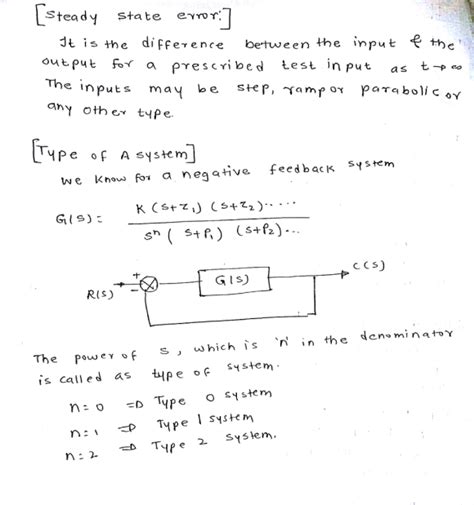 [Steady state error:]
It is the difference between the input & the
output for a prescribed test input as t→∞
The inputs may be step, ramp or parabolic or
any other type.
[Type of A system]
we know for a negative feedback system
G(s) = K (s+z₁) (s+z₂).....
sⁿ ( s+P₁) (s+P₂)...
+
R(s) G(s) C(s)
-
The power of s, which is 'n' in the denominator
is called as type of system.
n=0 ⇒ Type 0 system
n=1 ⇒ Type 1 system
n=2 ⇒ Type 2 system.